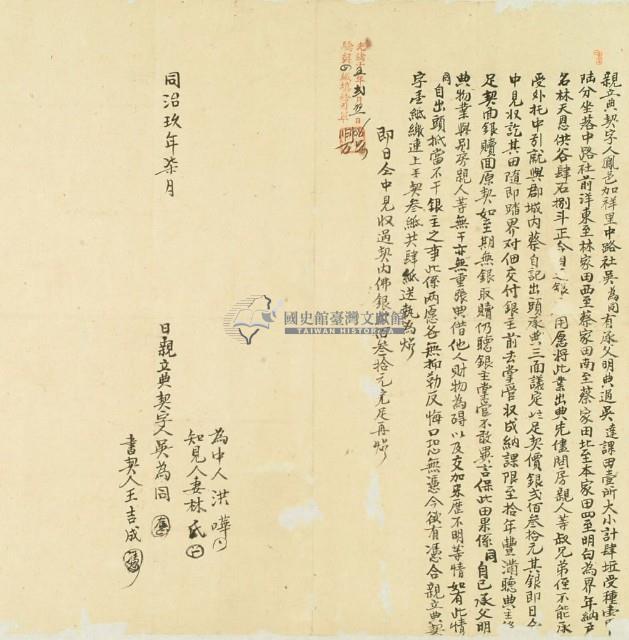 親立典契字人鳳邑加祥里中路社吳為同有承父明典過吳達課田壹所大小計肆坵受種壹
陸分坐落中路社前洋東至林家田西至蔡家田南至蔡家田北至本家田四至明白為界年納
名林天恩供谷肆石捌斗正今因乏銀 用愿將此業出典先儘問房親人等叔兄弟侄不能承
受外托中引就與郡城內蔡自記出頭承典三面議定此足契價銀弍佰叁拾元其銀即日仝
中見收訖其田隨即踏界对佃交付銀主前去掌管收成納課限至拾年豐滿聽典主
足契面銀贖回原契如至期無銀取贖仍聽銀主掌管不敢異言保此田果係同自己承父明
典物業與別房親人等無干亦無重張典借他人財物為碍以及交加來歷不明等情如有此情
同自出頭抵當不干銀主之事此係兩愿各無抑勒反悔口恐無憑今欲有憑合親立典契
字壹紙繳連上手契叁紙共肆紙送執為炤
即日仝中見收過契內佛銀弍佰叁拾元完足再炤
光緒十五年弍月 日
驗契
國史館臺灣文獻館
TAIWAN HISTORICA
為中人洪嘩
知見人妻林氏
同治玖年柒月 日親立典契字人吳為同
書契人王吉成